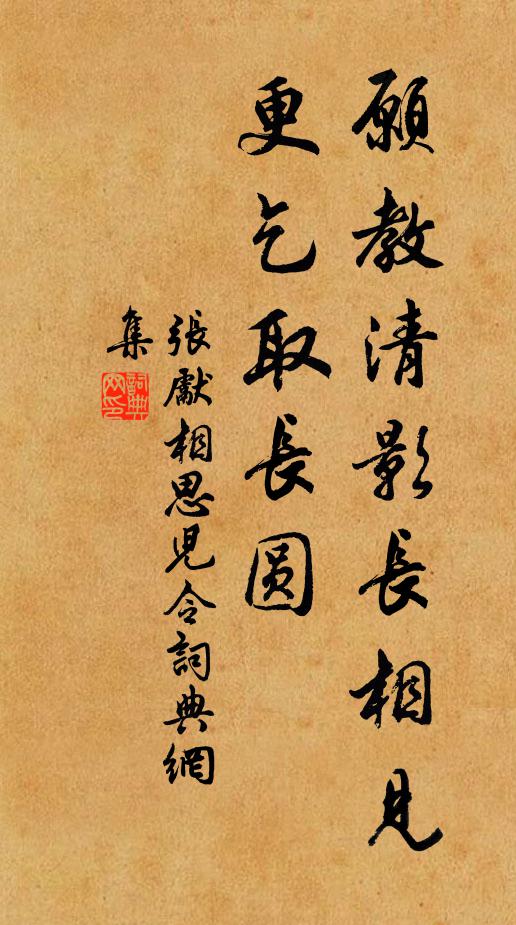 願教清影長相見
更乞取長圓
張獻相思兒令詞典網
集
詞典
网印